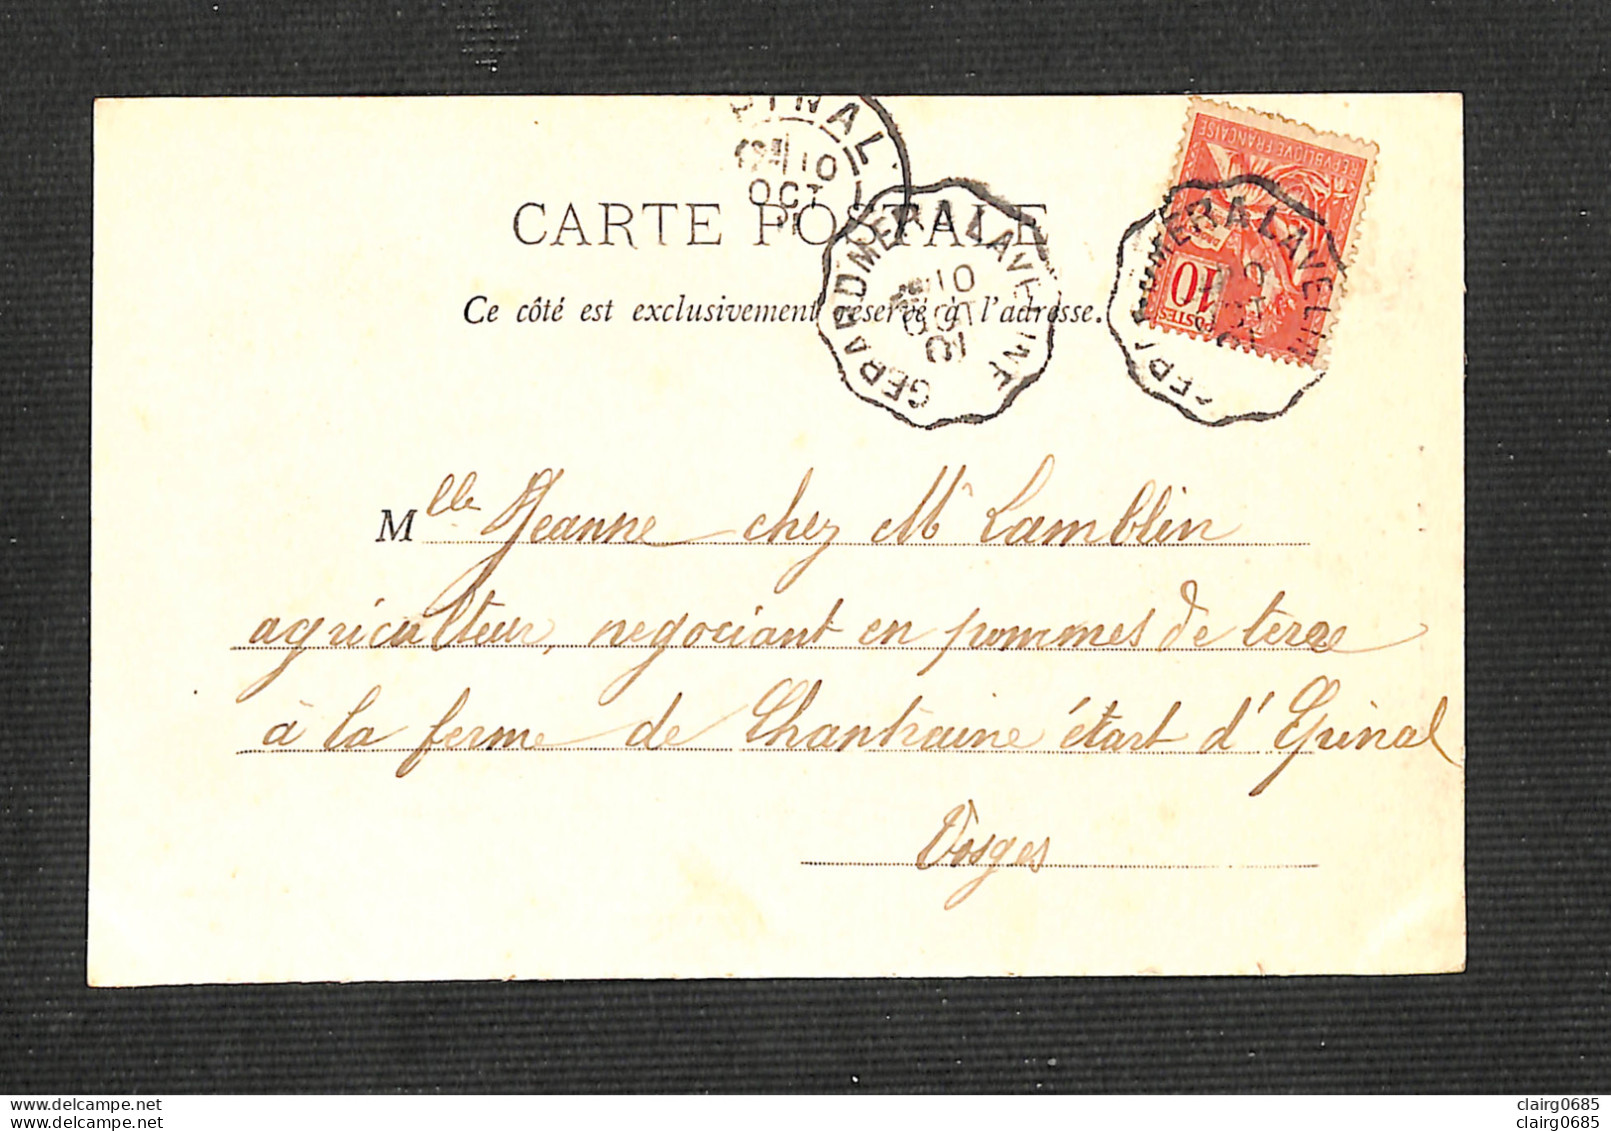 INAL
10
OCT
CARTE POSTALE
GERARDMER A LAVELINE
10
OCT
01
REPVBLIQVE FRANÇAISE
10
POSTES
GERARDMER A LAVELINE
Ce côté est exclusivement réservé à l'adresse.
Mlle Jeanne chez Mr Lamblin
agriculteur, negociant en pommes de terre
à la ferme de Chantraine étart d'Epinal
Vosges
delcampe.net
delcampe.net
clairg0685
clairg0685